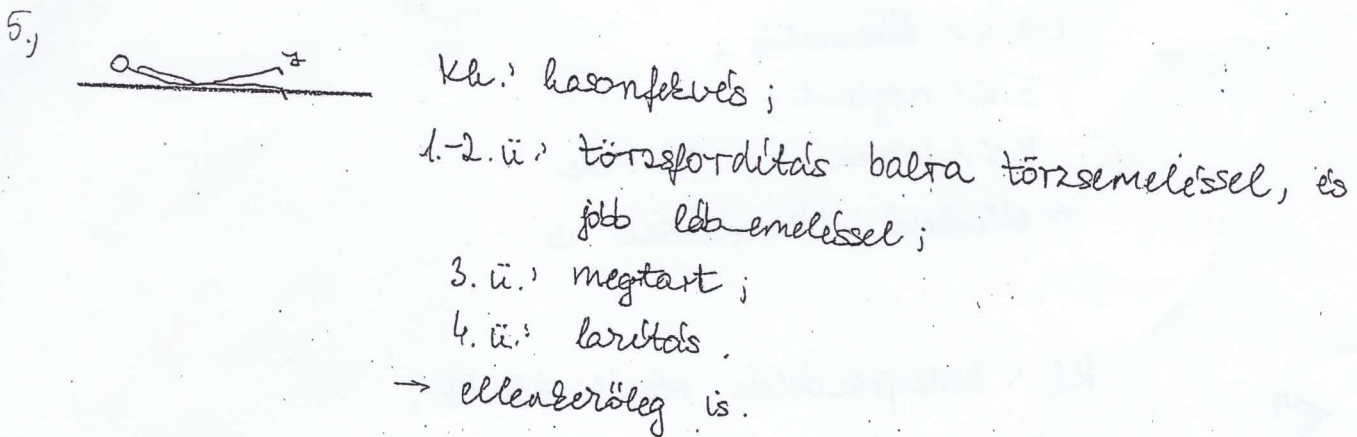 5.,
Kh.: hasonfekvés;
1.-2. ü.: törzsfordítás balra törzsemeléssel, és
jobb lábemeléssel;
3. ü.: megtart;
4. ü.: lazítás.
→ ellenkezőleg is.